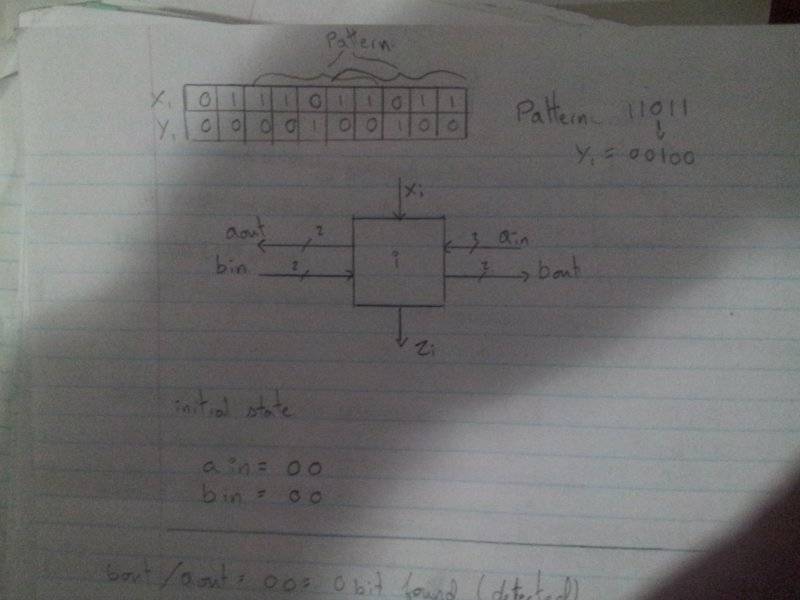 Pattern
Xi 0 1 1 1 0 1 1 0 1 1
Yi 0 0 0 0 1 0 0 1 0 0
Pattern 11011
Yi = 00100
xi
aout 2
2 ain
i
bin 2
2 bout
zi
initial state
ain = 00
bin = 00
bout/aout = 00 = 0 bit found (detected)